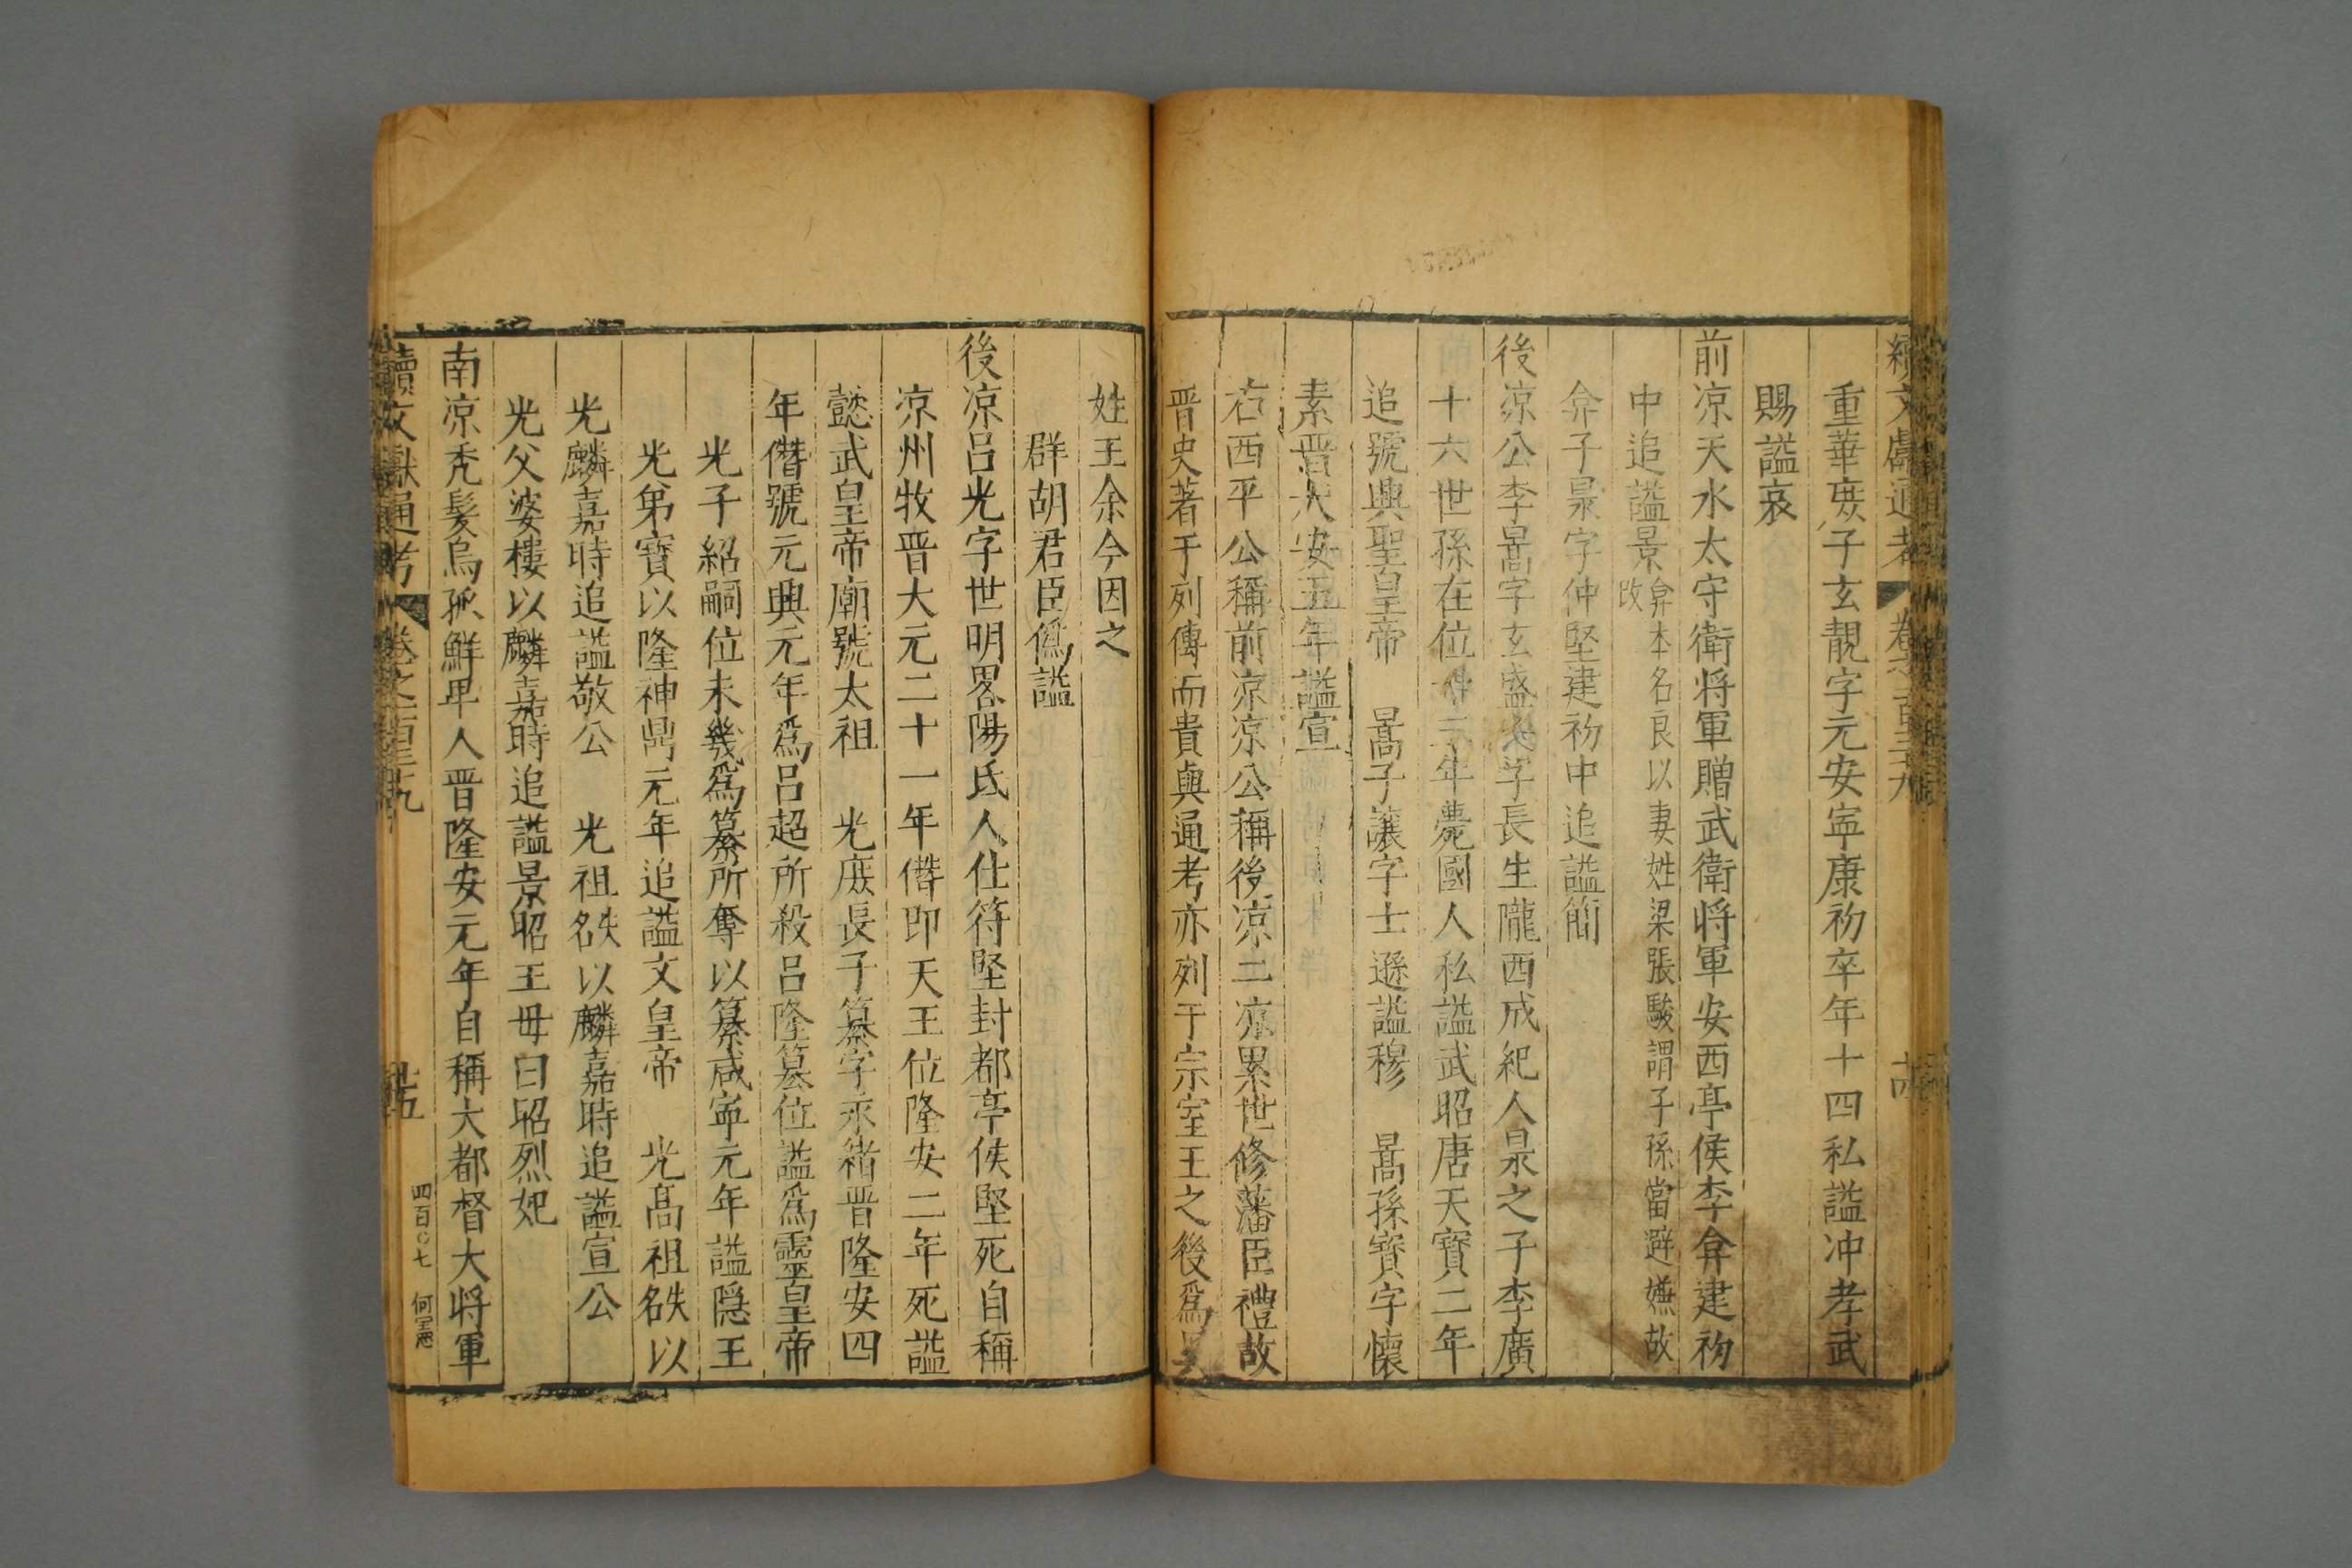 續文獻通考 卷之一百三十九 十四
重華庶子玄靚字元安寧康初卒年十四私諡冲孝武
賜諡哀
前凉天水太守衛將軍贈武衛將軍安西亭侯李弇建初
中追諡景弇本名良以妻姓梁張駿謂子孫當避嫌故改
弇子昶字仲堅建初中追諡簡
後凉公李暠字玄盛小字長生隴西成紀人昶之子李廣
十六世孫在位十二年薨國人私諡武昭唐天寶二年
追號興聖皇帝 暠子讓字士遜諡穆 暠孫寶字懷
素晋大安五年諡宣
右西平公稱前凉凉公稱後凉二凉累世修藩臣禮故
晋史著于列傳而貴與通考亦列于宗室王之後爲異
姓王余今因之
群胡君臣僞諡
後凉呂光字世明畧陽氐人仕符堅封都亭侯堅死自稱
凉州牧晋大元二十一年僣即天王位隆安二年死諡
懿武皇帝廟號太祖 光庶長子纂字永緒晋隆安四
年僭號元興元年爲呂超所殺呂隆簒位諡爲靈皇帝
光子紹嗣位未幾爲纂所奪以纂咸寧元年諡隱王
光弟寶以隆神鼎元年追諡文皇帝 光高祖名昳以
光麟嘉時追諡敬公 光祖名昳以麟嘉時追諡宣公
光父婆樓以麟嘉時追諡景昭王母曰昭烈妃
南凉秃髮烏孤鮮卑人晋隆安元年自稱大都督大將軍
續文獻通考 卷之一百三十九 十五 四百〇七 何